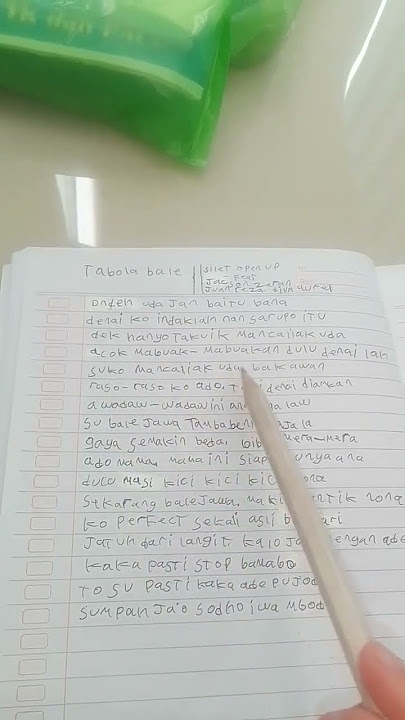 Tabola bale
SILET OPEN UP
FEAT
JACSON ZERAN
JUAN REZA DIVA AUREL
ondeh uda Jan baitu bana
denai ko indaklah nan sarupo itu
dek hanyo takuik Mancaliak uda
acok Mabuak-Mabuakan dulu denai lah
suko Mancaliak uda bakawan
raso-raso ko ado, denai diamkan
awadaw-wadaw ini galaw
su bale Jawa Tambah
gaya semakin beda, mera-mera
ado mama, mama ini siapa punya ana
dulu masi kici kici kici
sekarang bale Jawa, Makin zona
ko perfect sekali asli
Jatuh dari langit kalo dengan ade
kaka pasti stop bamabo
TO SU pasti kaka ade PUJOD
SUMPAH JA'O SODHO